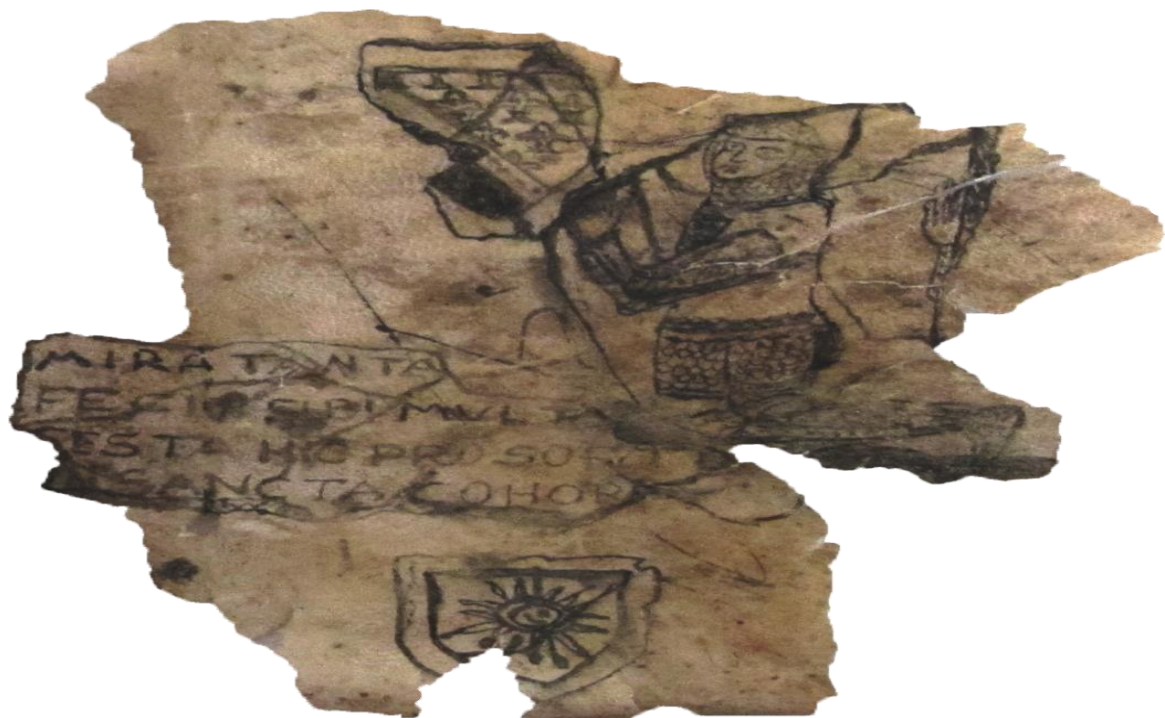 MIRA TANTA
FECIT SIBI MULTA
GESTA HIC PRO SO
SANCTA COHOR